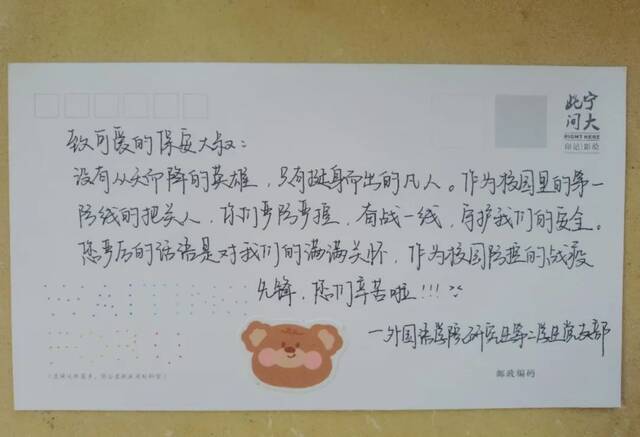 致可爱的保安大叔：
没有从天而降的英雄，只有挺身而出的凡人。作为校园里的第一
防线的把关人，你们严防严控，奋战一线，守护我们的安全。
您严厉的话语是对我们的满满关怀，作为校园防控的战疫
先锋，您们辛苦啦!!!
—外国语学院研究生第二学生党支部
宁大
此间
RIGHT HERE
印记|影绘
邮政编码